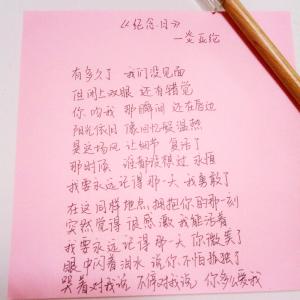 《纪念日》
—炎亚纶
有多久了 我们没见面
但闭上双眼 还有错觉
你吻我 那瞬间 还在唇边
阳光依旧 像回忆般温热
是这场风 让细节 复活了
那时候 谁都没想过 永恒
我要永远记得 那一天 我勇敢了
在这同样地点，拥抱你的那一刻
突然觉得 很感激 我能活着
我要永远记得 那一天 你微笑了
眼中闪着泪水 说你不怕孤独了
哭着对我说 不停对我说 你多么爱我